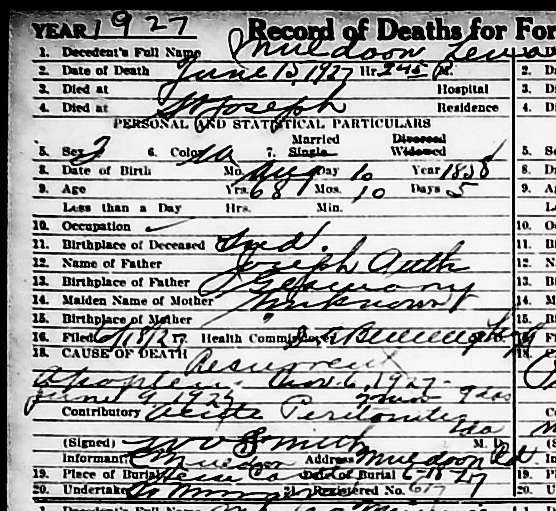 YEAR 1927 Record of Deaths for For
1. Decedent's Full Name Muldoon
2. Date of Death June 15 1927 Hr. 245 P.M.
3. Died at Hospital
4. Died at St Joseph Residence
PERSONAL AND STATISTICAL PARTICULARS
Married Divorced
5. Sex 6. Color 7. Single Widowed
8. Date of Birth Mo. Aug Day 10 Year 1858
9. Age Yrs. 68 Mos. 10 Days 5
Less than a Day Hrs. Min.
10. Occupation
11. Birthplace of Deceased Ind.
12. Name of Father Joseph Auth
13. Birthplace of Father Germany
14. Maiden Name of Mother Unknown
15. Birthplace of Mother "
16. Filed 6/18/27 17. Health Commissioner
18. CAUSE OF DEATH Recurrent
Apoplexy Nov. 6, 1927-
June 9 1927 9 das
Contributory Acute Peritonitis
da
(Signed) W W Smith M. D.
Informant Muldoon Address Muldoon Rd
19. Place of Burial Hesse Date of Burial 6 18 27
20. Undertaker 21. Registered No. 617
1. Decedent's Full Name